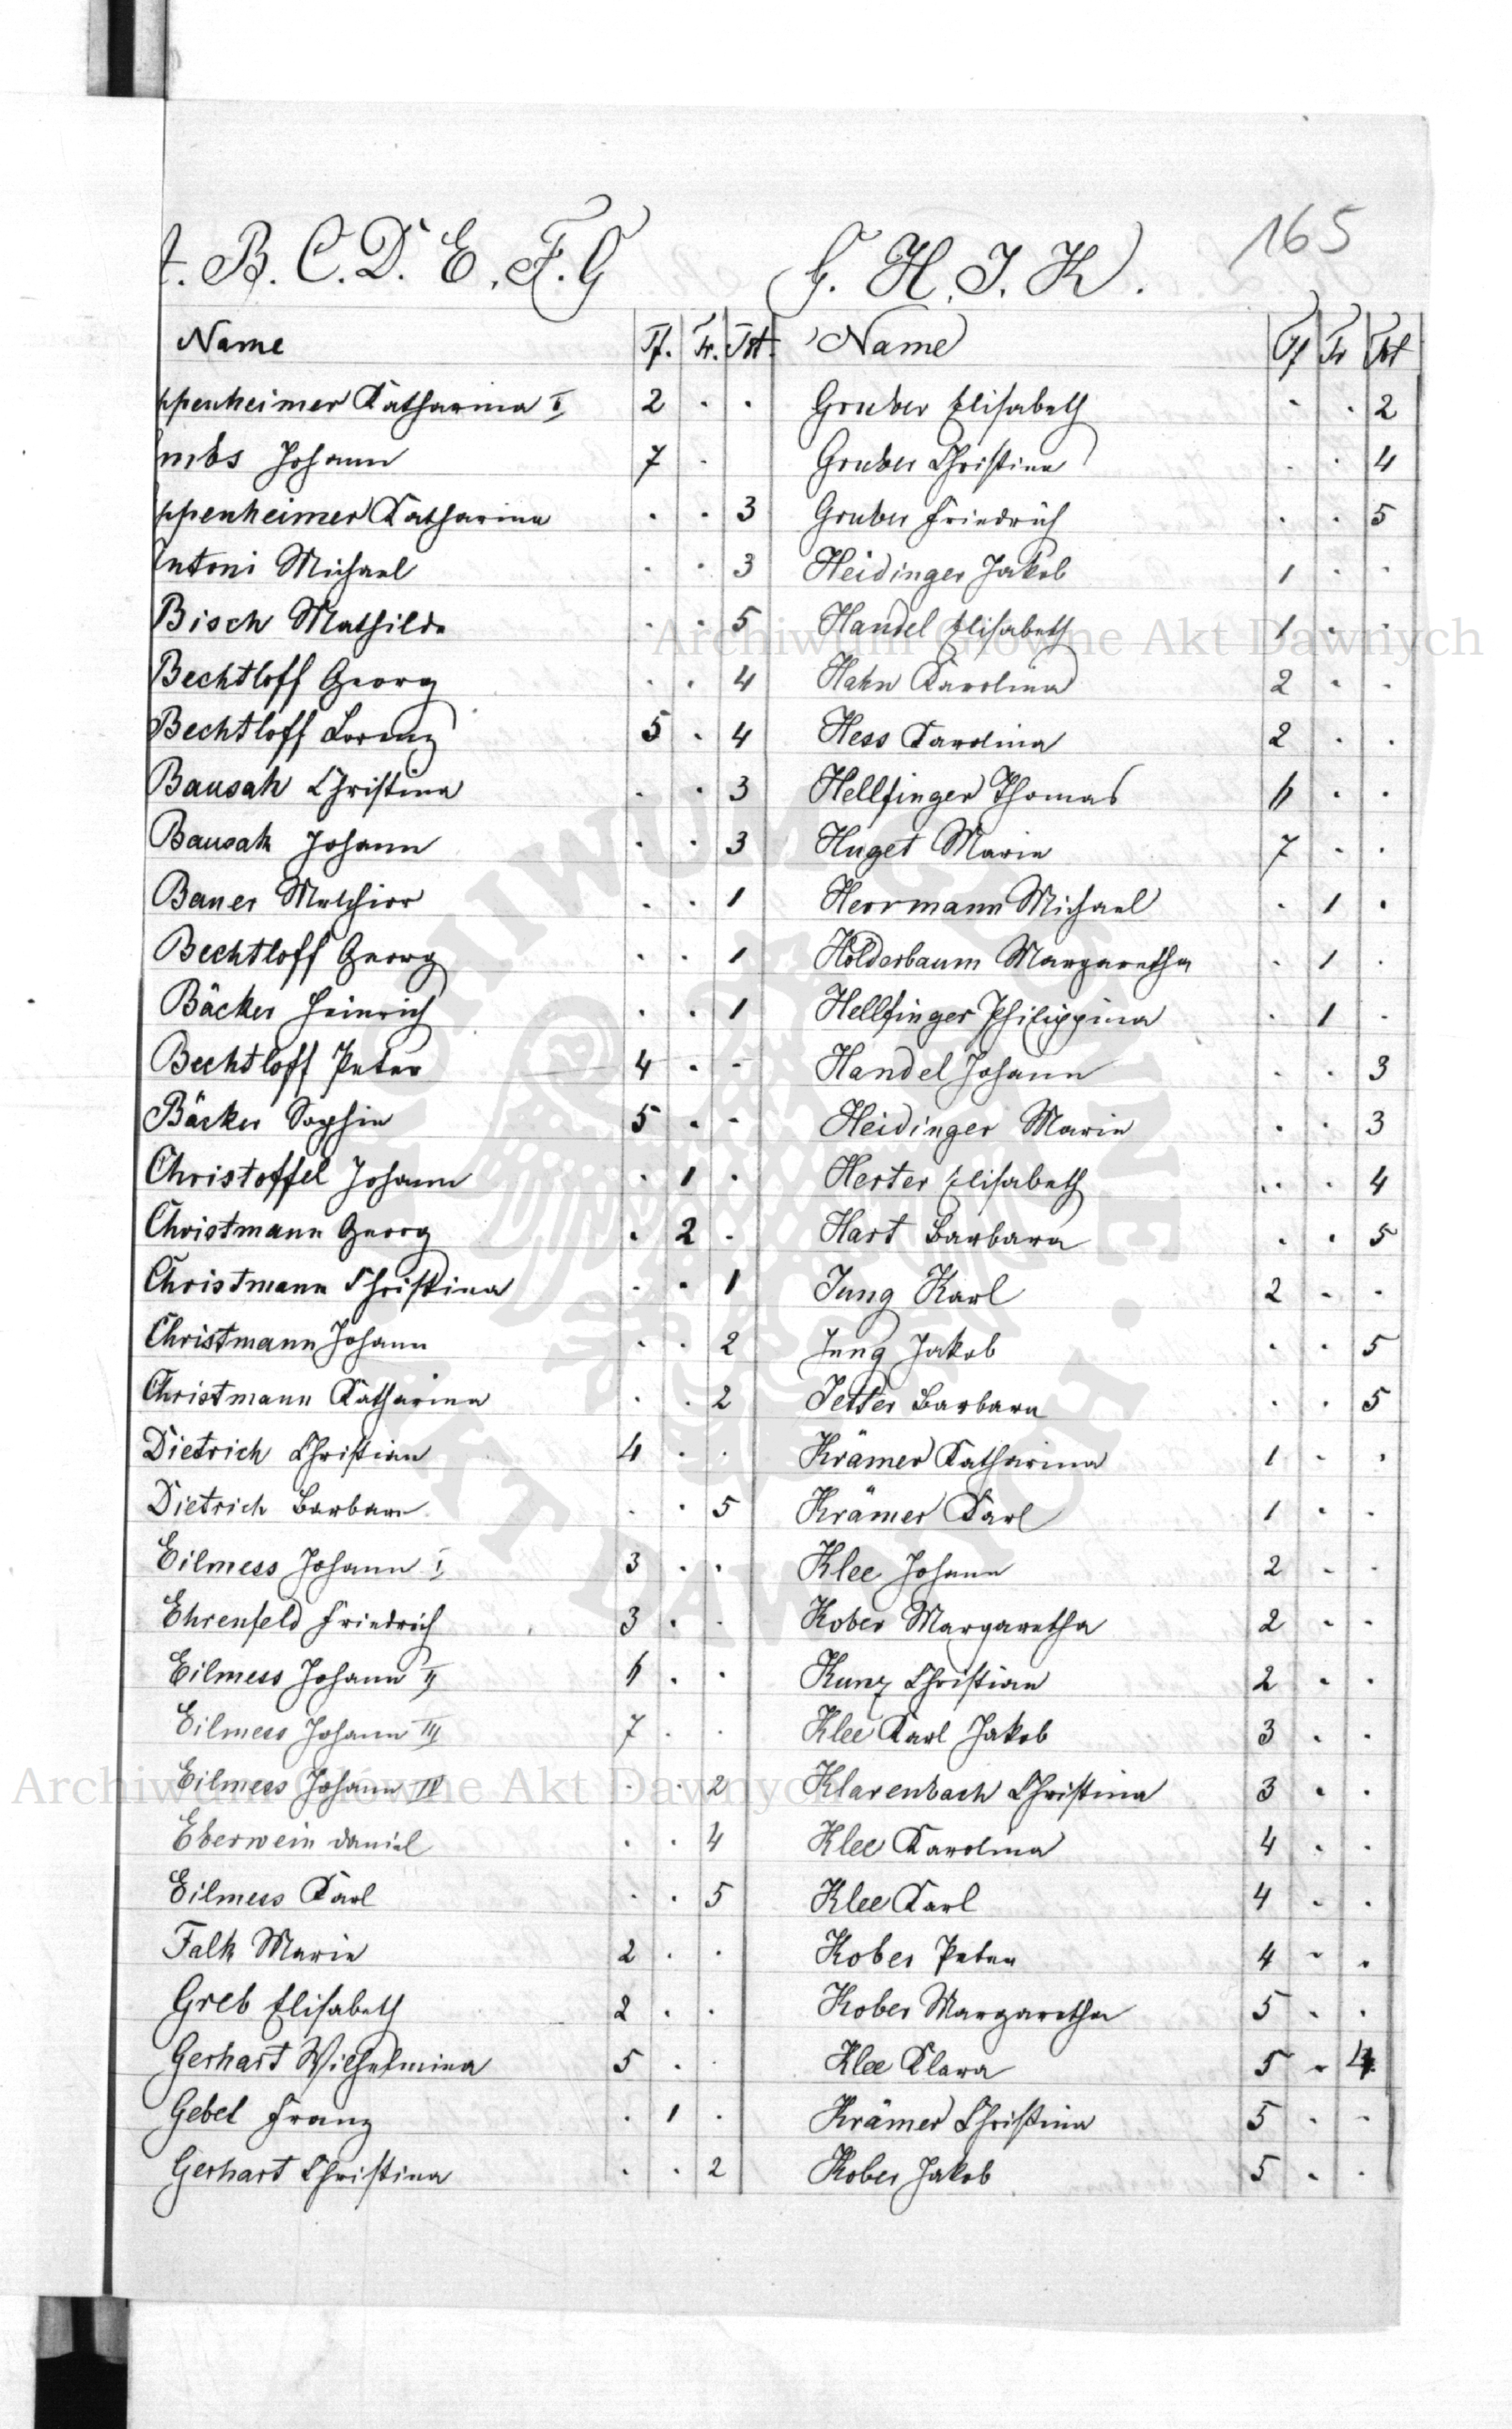 165
A. B. C. D. E. F. G
Name Tf. Tr. Tot.
ppenheimer Katharina I 2 . .
mbs Johann 7 .
ppenheimer Katharina . . 3
Antoni Michael . . 3
Bisch Mathilde . . 5
Bechtloff Georg . . 4
Bechtloff Lorenz 5 . 4
Bausah Christina . . 3
Bausah Johann . . 3
Bauer Melchior . . 1
Bechtloff Georg . . 1
Bäcker Heinrich . . 1
Bechtloff Peter 4 . -
Bäcker Sophie 5 . -
Christoffel Johann . 1 .
Christmann Georg . 2 .
Christmann Christina . . 1
Christmann Johann . . 2
Christmann Katharina . . 2
Dietrich Christian 4 . .
Dietrich Barbara . . 5
Eilmess Johann I 3 . .
Ehrenfeld Friedrich 3 . .
Eilmess Johann II 6 . .
Eilmess Johann III 7 . .
Eilmess Johann IV . . 2
Eberwein Daniel . . 4
Eilmess Karl . . 5
Falk Marie 2 . .
Greb Elisabeth 2 . .
Gerhart Wilhelmina 5 . .
Gebel Franz . 1 .
Gerhart Christina . . 2
G. H. I. K.
Name Tf Tr Tot
Gruber Elisabeth . . 2
Gruber Christina . . 4
Gruber Friedrich . . 5
Heidinger Jakob 1 . .
Handel Elisabeth 1 . .
Hahn Karolina 2 . .
Hess Karolina 2 . .
Hellfinger Thomas 6 . .
Huget Marie 7 . .
Herrmann Michael . 1 .
Holderbaum Margaretha . 1 .
Hellfinger Philippina . 1 .
Handel Johann . . 3
Heidinger Marie . . 3
Herter Elisabeth . . 4
Hart Barbara . . 5
Jung Karl 2 . .
Jung Jakob . . 5
Jetter Barbara . . 5
Krämer Katharina 1 . .
Krämer Karl 1 . .
Klee Johann 2 . .
Kober Margaretha 2 . .
Kunz Christian 2 . .
Klee Karl Jakob 3 . .
Klarenbach Christina 3 . .
Klee Karolina 4 . .
Klee Karl 4 . .
Kober Peter 4 . .
Kober Margaretha 5 . .
Klee Klara 5 . 4
Krämer Christina 5 . .
Kober Jakob 5 . .
Archiwum Główne Akt Dawnych
Archiwum Główne Akt Dawnych
ARCHIWUM GŁÓWNE AKT DAWNYCH